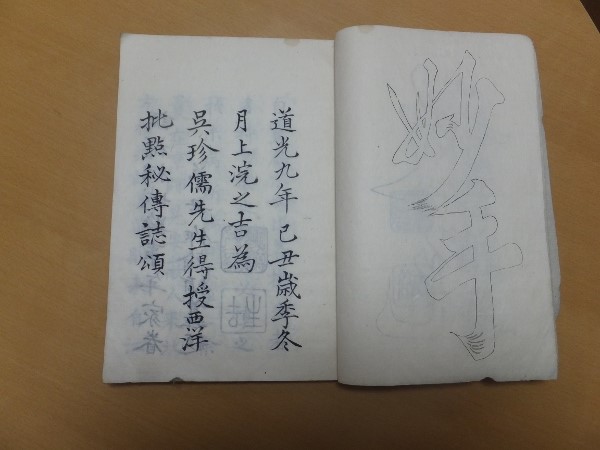 妙手
道光九年己丑歲季冬
月上浣之吉為
吳珍儒先生得授西洋
批點秘傳誌頌